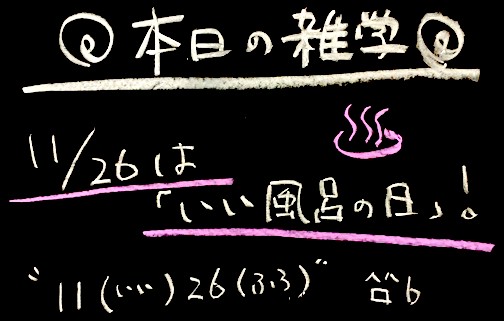 本日の雑学
11/26は
「いい風呂の日」!
"11(いい)26(ふろ)"